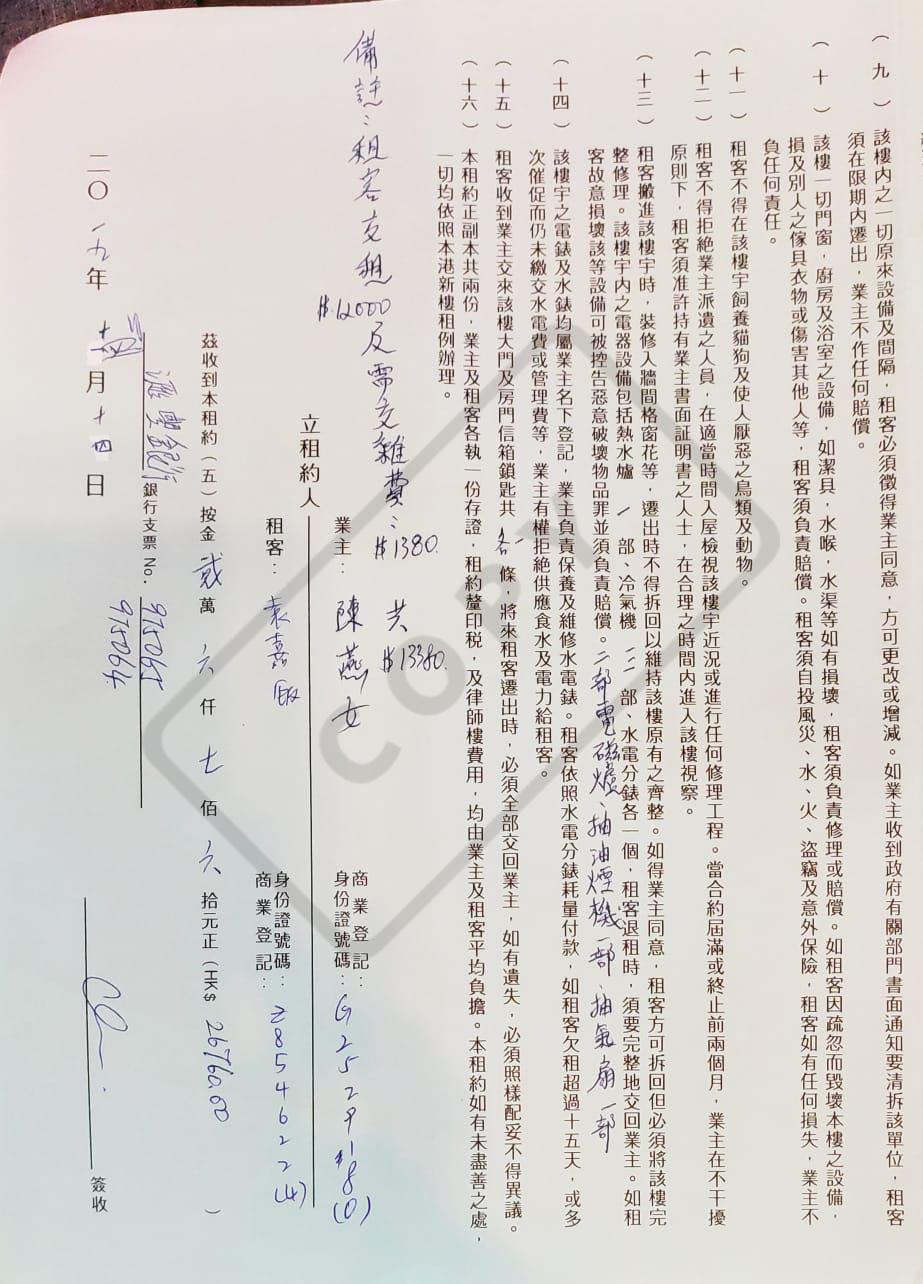 （九）該樓內之一切原來設備及間隔，租客必須徵得業主同意，方可更改或增減。如業主收到政府有關部門書面通知要清拆該單位，租客
須在限期內遷出，業主不作任何賠償。
（十）該樓一切門窗，廚房及浴室之設備，如潔具，水喉，水渠等如有損壞，租客須負責修理或賠償。如租客因疏忽而毀壞本樓之設備，
損及別人之傢具衣物或傷害其他人等，租客須負責賠償。租客須自投風災、水、火、盜竊及意外保險，租客如有任何損失，業主不
負任何責任。
（十一）租客不得在該樓宇飼養貓狗及使人厭惡之鳥類及動物。
（十二）租客不得拒絶業主派遺之人員，在適當時間入屋檢視該樓宇近況或進行任何修理工程。當合約屆滿或終止前兩個月，業主在不干擾
原則下，租客須准許持有業主書面証明書之人士，在合理之時間內進入該樓視察。
（十三）租客搬進該樓宇時，裝修入牆間格窗花等，遷出時不得拆回以維持該樓原有之齊整。如得業主同意，租客方可拆回但必須將該樓完
整修理。該樓宇內之電器設備包括熱水爐一部、冷氣機二部、水電分錶各一個，租客退租時，須要完整地交回業主。如租
客故意損壞該等設備可被控告惡意破壞物品罪並須負責賠償。二部電磁爐、抽油煙機一部、抽氣扇一部
（十四）該樓宇之電錶及水錶均屬業主名下登記，業主負責保養及維修水電錶。租客依照水電分錶耗量付款，如租客欠租超過十五天，或多
次催促而仍未繳交水電費或管理費等，業主有權拒絶供應食水及電力給租客。
（十五）租客收到業主交來該樓大門及房門信箱鎖匙共各一條，將來租客遷出時，必須全部交回業主，如有遺失，必須照樣配妥不得異議。
（十六）本租約正副本共兩份，業主及租客各執一份存證，租約釐印税，及律師樓費用，均由業主及租客平均負擔。本租約如有未盡善之處，
一切均依照本港新樓租例辦理。
備註：租客交租$12000反需交雜費：$1380. 共$13380.
立租約人
業主：陳燕女
商業登記：
身份證號碼：G252918(0)
租客：袁嘉敏
身份證號碼：Z854622(4)
商業登記：
茲收到本租約（五）按金貳萬六仟七佰六拾元正（HK$ 26760.00）
滙豐銀行銀行支票 No. 975065
975064
簽收
二〇一九年 月十四日
COPY